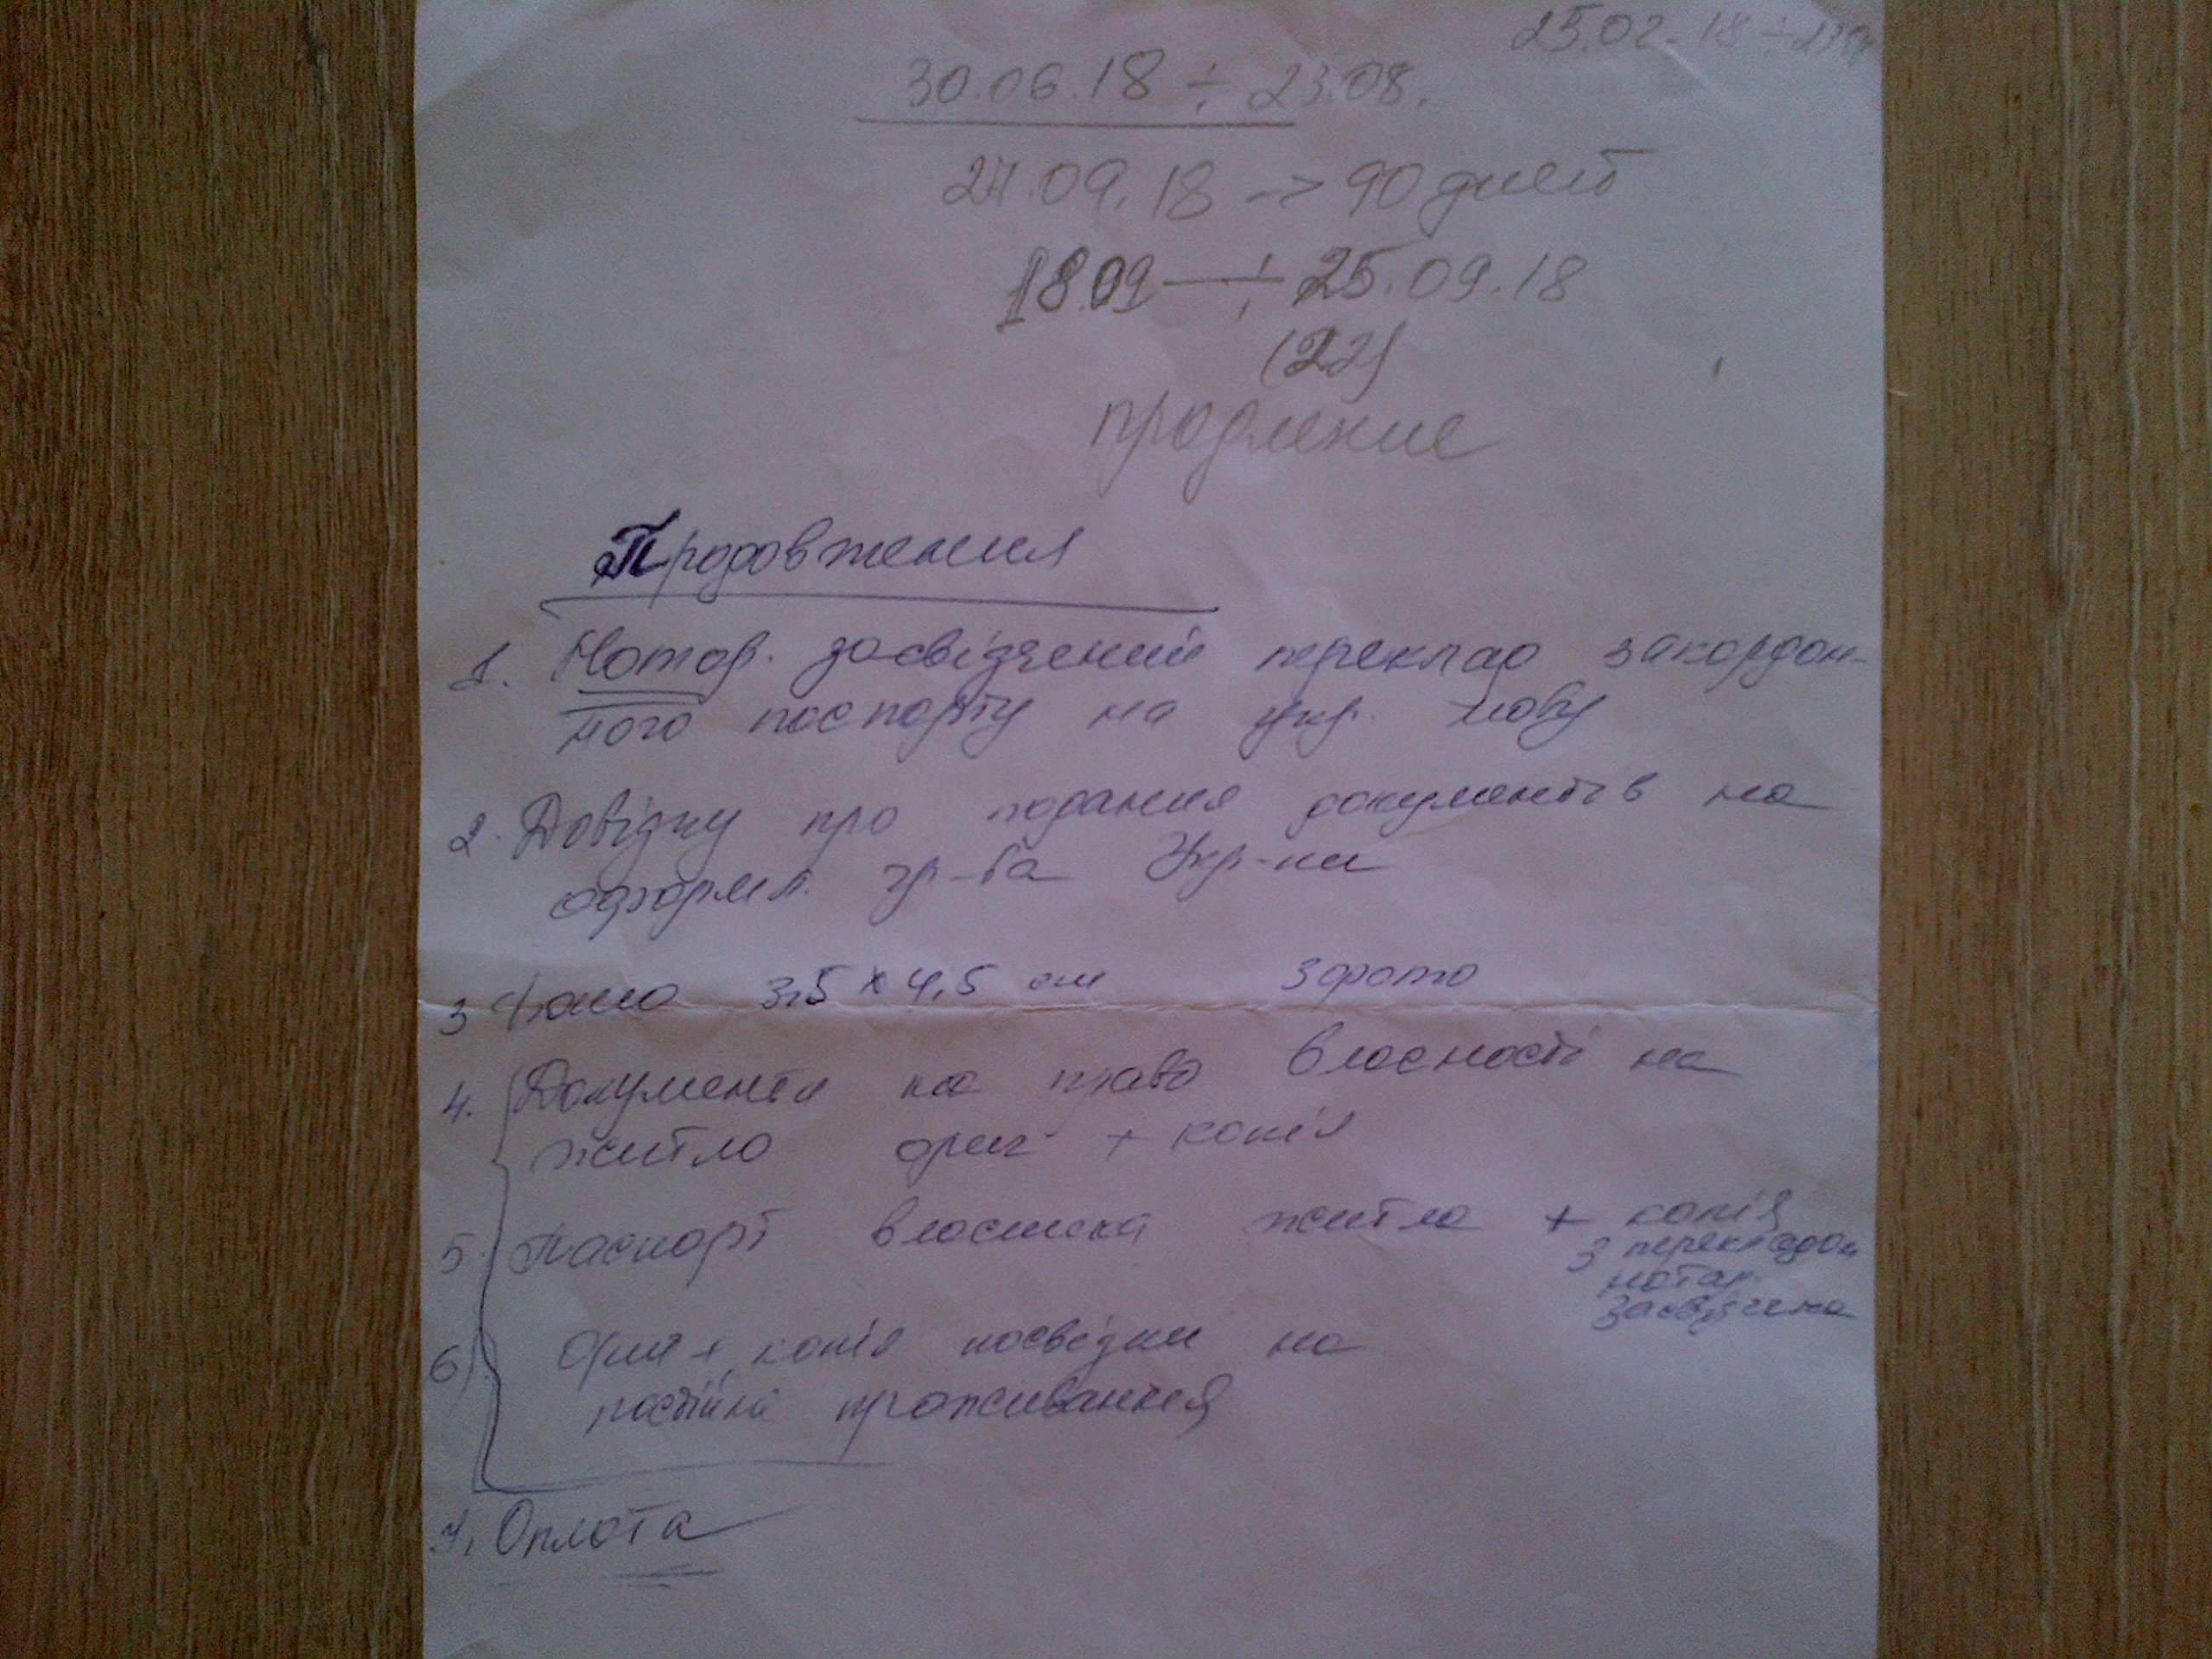 25.02.18 ÷
30.06.18 ÷ 23.08.
27.09.18 -> 90 дней
18.09 — ÷ 25.09.18
(22)
продление
Продовження
1. Нотар. засвідчений переклад закордон-
ного паспорту на укр. мову
2. Довідку про подання документів на
оформл. гр-ва Укр-ни
3 Фото 3,5 x 4,5 см 3 фото
4. Документи на право власності на
житло ориг + копія
5. Паспорт власника житла + копія
з перекладом
нотар.
засвідчена
6) Ориг + копія посвідки на
постійне проживання
7. Оплата